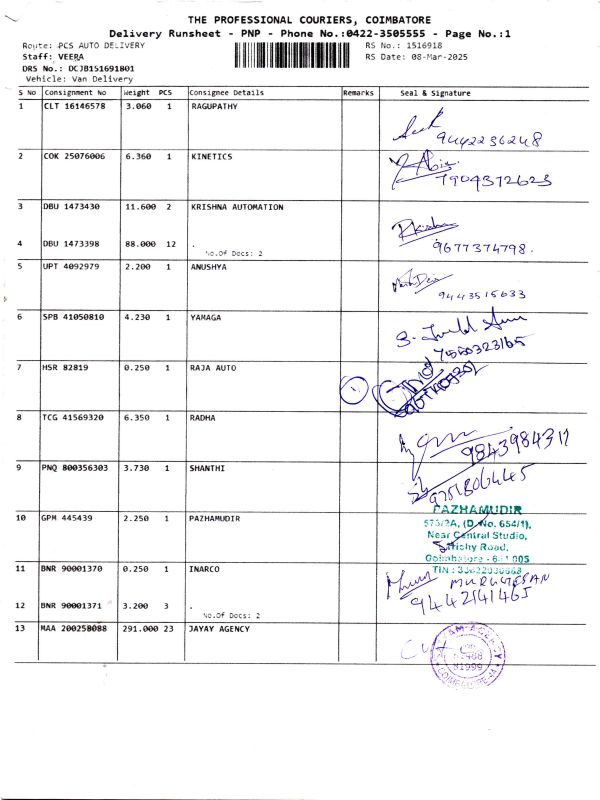 THE PROFESSIONAL COURIERS, COIMBATORE
Delivery Runsheet - PNP - Phone No.:0422-3505555 - Page No.:1
Route: PCS AUTO DELIVERY
RS No.: 1516918
Staff: VEERA
RS Date: 08-Mar-2025
DRS No.: DCJB151691801
Vehicle: Van Delivery
S No Consignment No Weight PCS Consignee Details Remarks Seal & Signature
1 CLT 16146578 3.060 1 RAGUPATHY
9442236248
2 COK 25076006 6.360 1 KINETICS
7904372623
3 DBU 1473430 11.600 2 KRISHNA AUTOMATION
4 DBU 1473398 88.000 12 .
9677374798.
No.Of Docs: 2
5 UPT 4092979 2.200 1 ANUSHYA
9443515633
6 SPB 41050810 4.230 1 YAMAGA
7 HSR 82819 0.250 1 RAJA AUTO
1
8 TCG 41569320 6.350 1 RADHA
9 PNQ 800356303 3.730 1 SHANTHI
10 GPM 445439 2.250 1 PAZHAMUDIR
PAZHAMUDIR
573/2A, (D.No. 654/1),
Near Central Studio,
Trichy Road,
Coimbatore - 641 005
11 BNR 90001370 0.250 1 INARCO
MURUGESAN
12 BNR 90001371 3.200 3 .
No.Of Docs: 2
13 MAA 200258088 291.000 23 JAYAY AGENCY